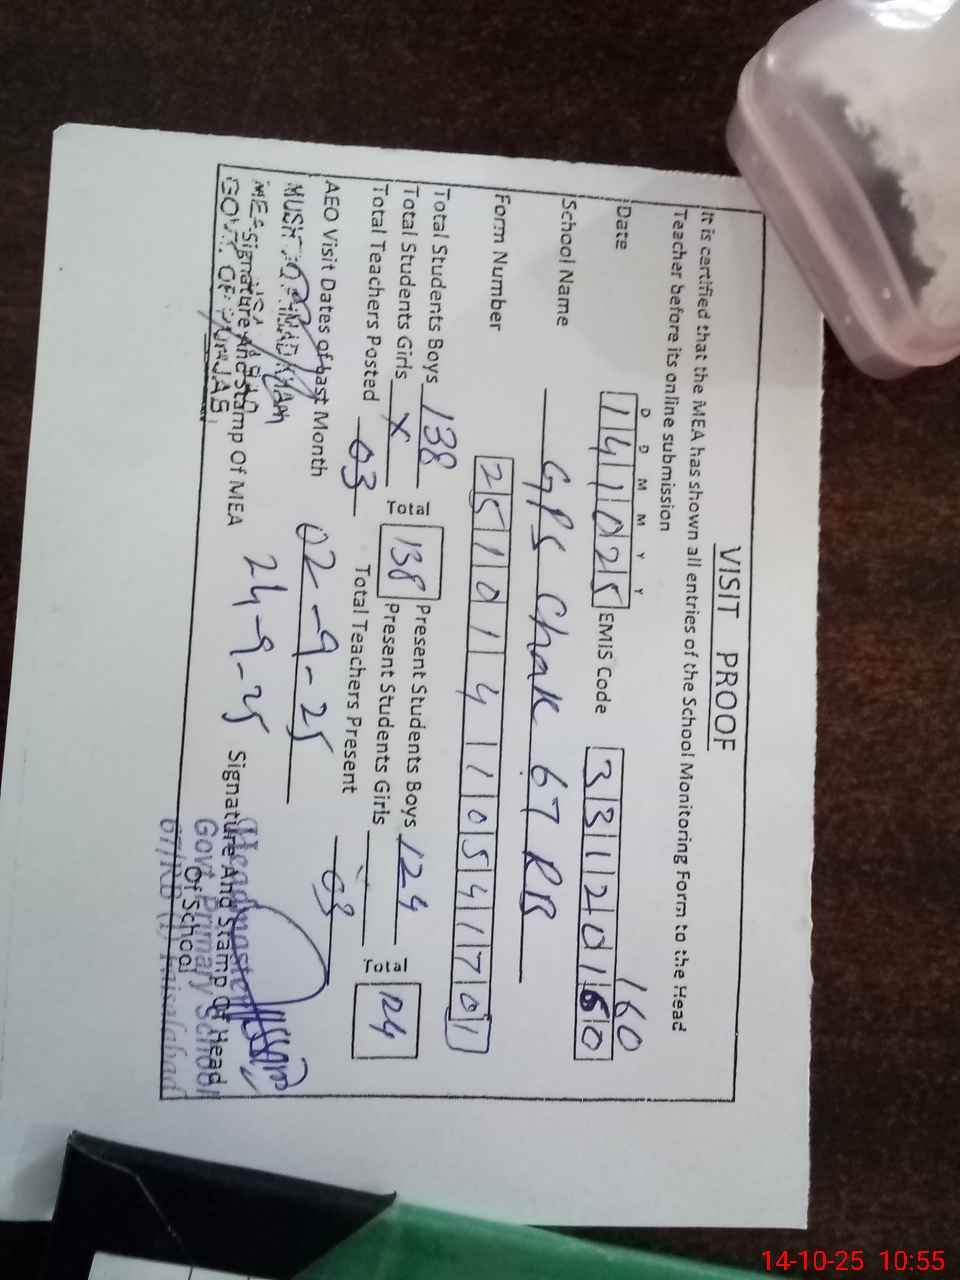 VISIT PROOF
It is certified that the MEA has shown all entries of the School Monitoring Form to the Head
Teacher before its online submission
D D M M Y Y
160
Date 141025 EMIS Code 33120160
School Name GPS Chak 67 RB
Form Number 251014110541701
Total Students Boys 138 Total 138 Present Students Boys 124 Total 124
Total Students Girls X Present Students Girls
Total Teachers Posted 03 Total Teachers Present 03
AEO Visit Dates of Last Month 02-9-25
24-9-25
MEA Signature And Stamp Of MEA
GOVT: OF PUNJAB
Signature And Stamp Of Head
Of School
Headmaster
Govt. Primary School
67/RB (1) Faisalabad
14-10-25 10:55